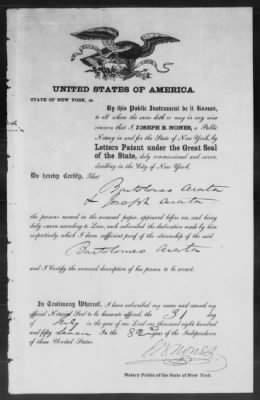 UNITED STATES OF AMERICA.
STATE OF NEW YORK, ss.
By this Public Instrument be it Known,
to all whom the same doth or may in any wise
concern that I JOSEPH B. NONES, a Public
Notary in and for the State of New York, by
Letters Patent under the Great Seal
of the State, duly commissioned and sworn,
dwelling in the City of New York.
Do hereby Certify, That
Bartolomeo Arata
& Joseph Arata
the persons named in the annexed paper, appeared before me, and being
duly sworn according to Law, each subscribed the declaration made by him
respectively, which I deem sufficient proof of the citizenship of the said
Bartolomeo Arata
and I Certify the annexed description of his person to be correct.
In Testimony Whereof, I have subscribed my name and caused my
official Notarial Seal to be hereunto affixed, the 31 day
of July in the year of our Lord one thousand eight hundred
and fifty seven In the 82 year of the Independence
of these United States.
J B NONES
Notary Public of the State of New York.